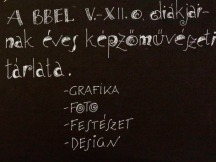 A BBEL V.-XII.o. diákjai-
nak éves képzőművészeti
tárlata.
-GRAFIKA
-FOTO
-FESTÉSZET
-DESIGN